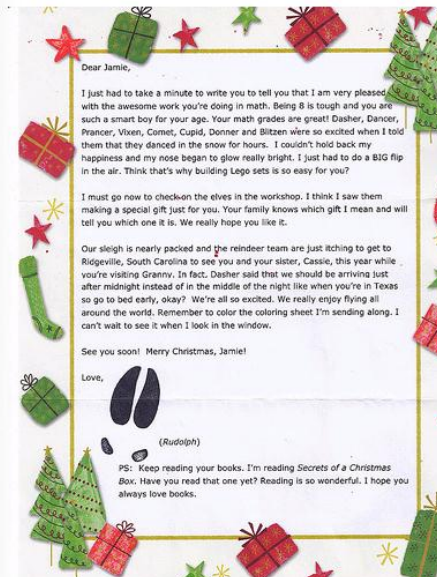 Dear Jamie,
I just had to take a minute to write you to tell you that I am very pleased
with the awesome work you're doing in math. Being 8 is tough and you are
such a smart boy for your age. Your math grades are great! Dasher, Dancer,
Prancer, Vixen, Comet, Cupid, Donner and Blitzen were so excited when I told
them that they danced in the snow for hours. I couldn't hold back my
happiness and my nose began to glow really bright. I just had to do a BIG flip
in the air. Think that's why building Lego sets is so easy for you?
I must go now to check on the elves in the workshop. I think I saw them
making a special gift just for you. Your family knows which gift I mean and will
tell you which one it is. We really hope you like it.
Our sleigh is nearly packed and the reindeer team are just itching to get to
Ridgeville, South Carolina to see you and your sister, Cassie, this year while
you're visiting Granny. In fact. Dasher said that we should be arriving just
after midnight instead of in the middle of the night like when you're in Texas
so go to bed early, okay? We're all so excited. We really enjoy flying all
around the world. Remember to color the coloring sheet I'm sending along. I
can't wait to see it when I look in the window.
See you soon! Merry Christmas, Jamie!
Love,
(Rudolph)
PS: Keep reading your books. I'm reading Secrets of a Christmas
Box. Have you read that one yet? Reading is so wonderful. I hope you
always love books.